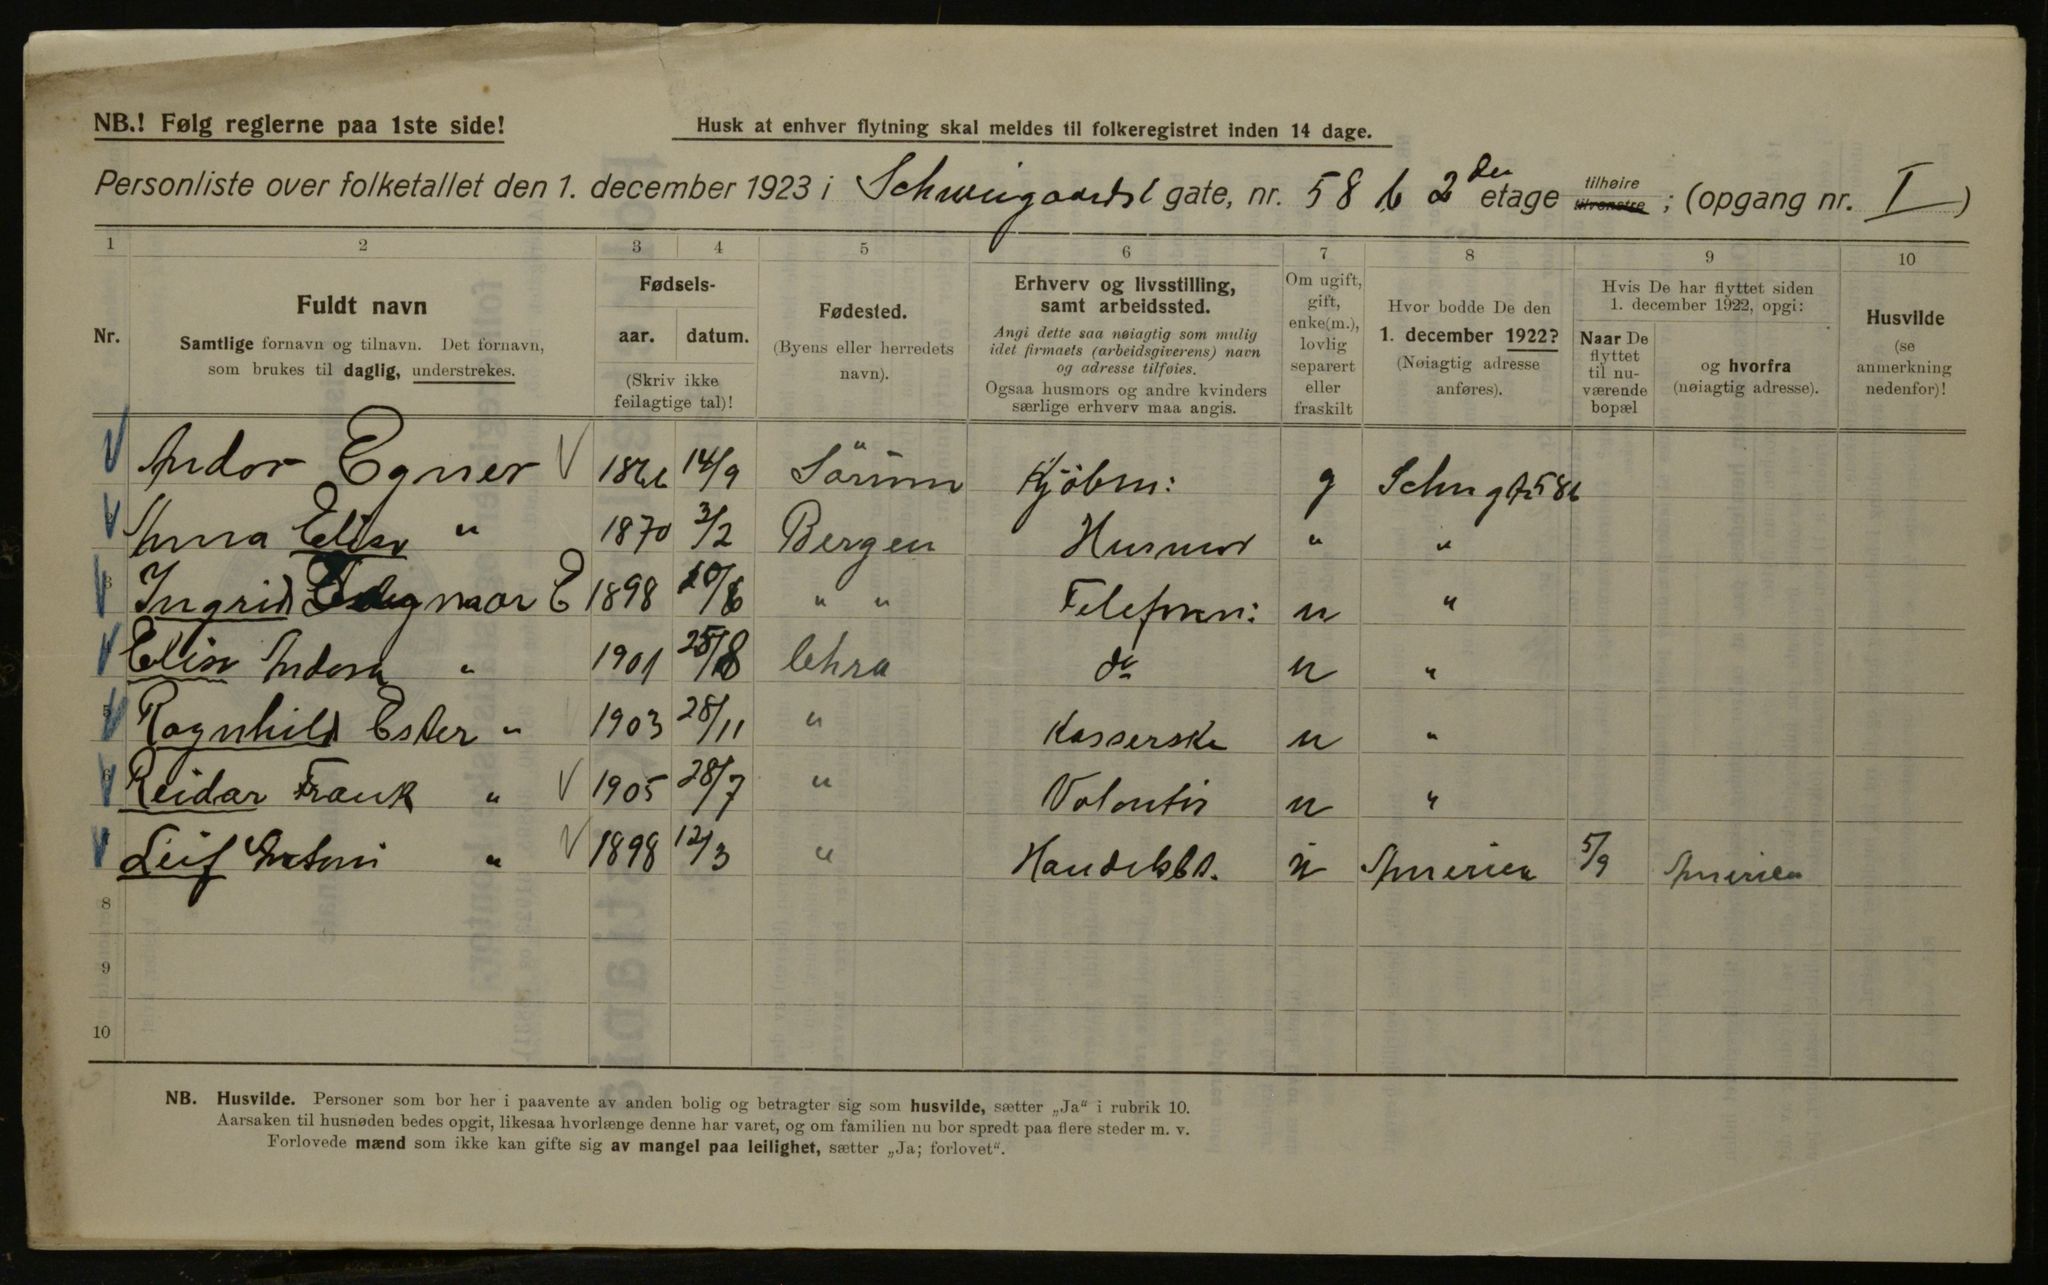 NB.! Følg reglerne paa 1ste side!
Husk at enhver flytning skal meldes til folkeregistret inden 14 dage.
Personliste over folketallet den 1. december 1923 i Schweigaards gate, nr. 58 b 2den etage tilhøire tilvenstre ; (opgang nr. I )
1 2 3 4 5 6 7 8 9 10
Nr.
Fuldt navn
Samtlige fornavn og tilnavn. Det fornavn,
som brukes til daglig, understrekes.
Fødsels-
aar. datum.
(Skriv ikke
feilagtige tal)!
Fødested.
(Byens eller herredets
navn).
Erhverv og livsstilling,
samt arbeidssted.
Angi dette saa nøiagtig som mulig
idet firmaets (arbeidsgiverens) navn
og adresse tilføies.
Ogsaa husmors og andre kvinders
særlige erhverv maa angis.
Om ugift,
gift,
enke(m.),
lovlig
separert
eller
fraskilt
Hvor bodde De den
1. december 1922?
(Nøiagtig adresse
anføres).
Hvis De har flyttet siden
1. december 1922, opgi:
Naar De
flyttet
til nu-
værende
bopæl
og hvorfra
(nøiagtig adresse).
Husvilde
(se
anmerkning
nedenfor)!
Andor Egner 14/9 Sörum Kjöbm: g 58b
Anna Elise " 1870 3/2 Bergen Husmor " "
3 Ingrid E 1898 " " Telefon: u "
Elise Andora " 1901 25/8 do u "
5 Ragnhild Ester " 1903 28/11 " Kasserske u "
6 Reidar Frank " 1905 28/7 " Volontör u "
Leif Antoni " 1898 12/3 " Handelsbt. u America 5/9 America
8
9
10
NB. Husvilde. Personer som bor her i paavente av anden bolig og betragter sig som husvilde, sætter „Ja“ i rubrik 10.
Aarsaken til husnøden bedes opgit, likesaa hvorlænge denne har varet, og om familien nu bor spredt paa flere steder m. v.
Forlovede mænd som ikke kan gifte sig av mangel paa leilighet, sætter „Ja; forlovet“.